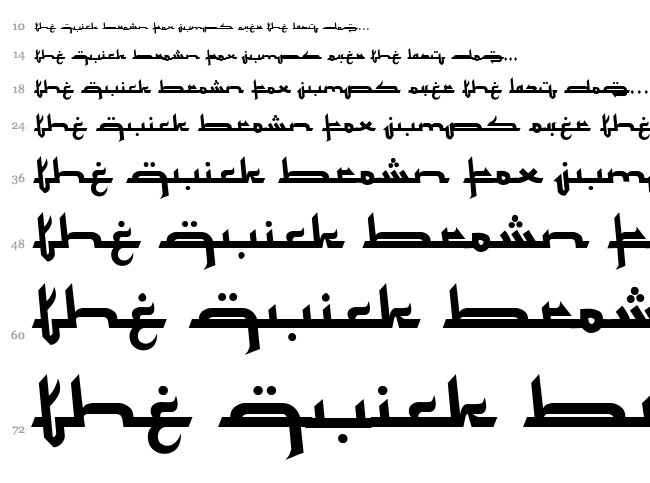 10 the quick brown fox jumps over the lazy dog...
14 the quick brown fox jumps over the lazy dog...
18 the quick brown fox jumps over the lazy dog...
24 the quick brown fox jumps over the
36 the quick brown fox jump
48 the quick brown f
60 the quick brow
72 the quick b